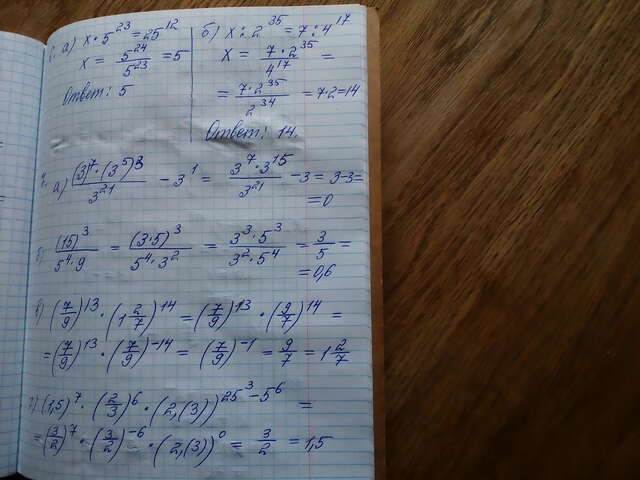 1. а) x · 5²³ = 25¹²
x = 5²⁴/5²³ = 5
Ответ: 5
б) x : 2³⁵ = 7 : 4¹⁷
x = 7·2³⁵/4¹⁷ =
= 7·2³⁵/2³⁴ = 7·2 = 14
Ответ: 14.
2. а) (3)⁷·(3⁵)³/3²¹ − 3¹ = 3⁷·3¹⁵/3²¹ − 3 = 3−3 =
= 0
б) (15)³/5⁴·9 = (3·5)³/5⁴·3² = 3³·5³/3²·5⁴ = 3/5 =
= 0,6
в) (7/9)¹³ · (1 2/7)¹⁴ = (7/9)¹³ · (9/7)¹⁴ =
= (7/9)¹³ · (7/9)⁻¹⁴ = (7/9)⁻¹ = 9/7 = 1 2/7
г) (1,5)⁷ · (2/3)⁶ · (2,(3))^(25³−5⁶) =
= (3/2)⁷ · (3/2)⁻⁶ · (2,(3))⁰ = 3/2 = 1,5